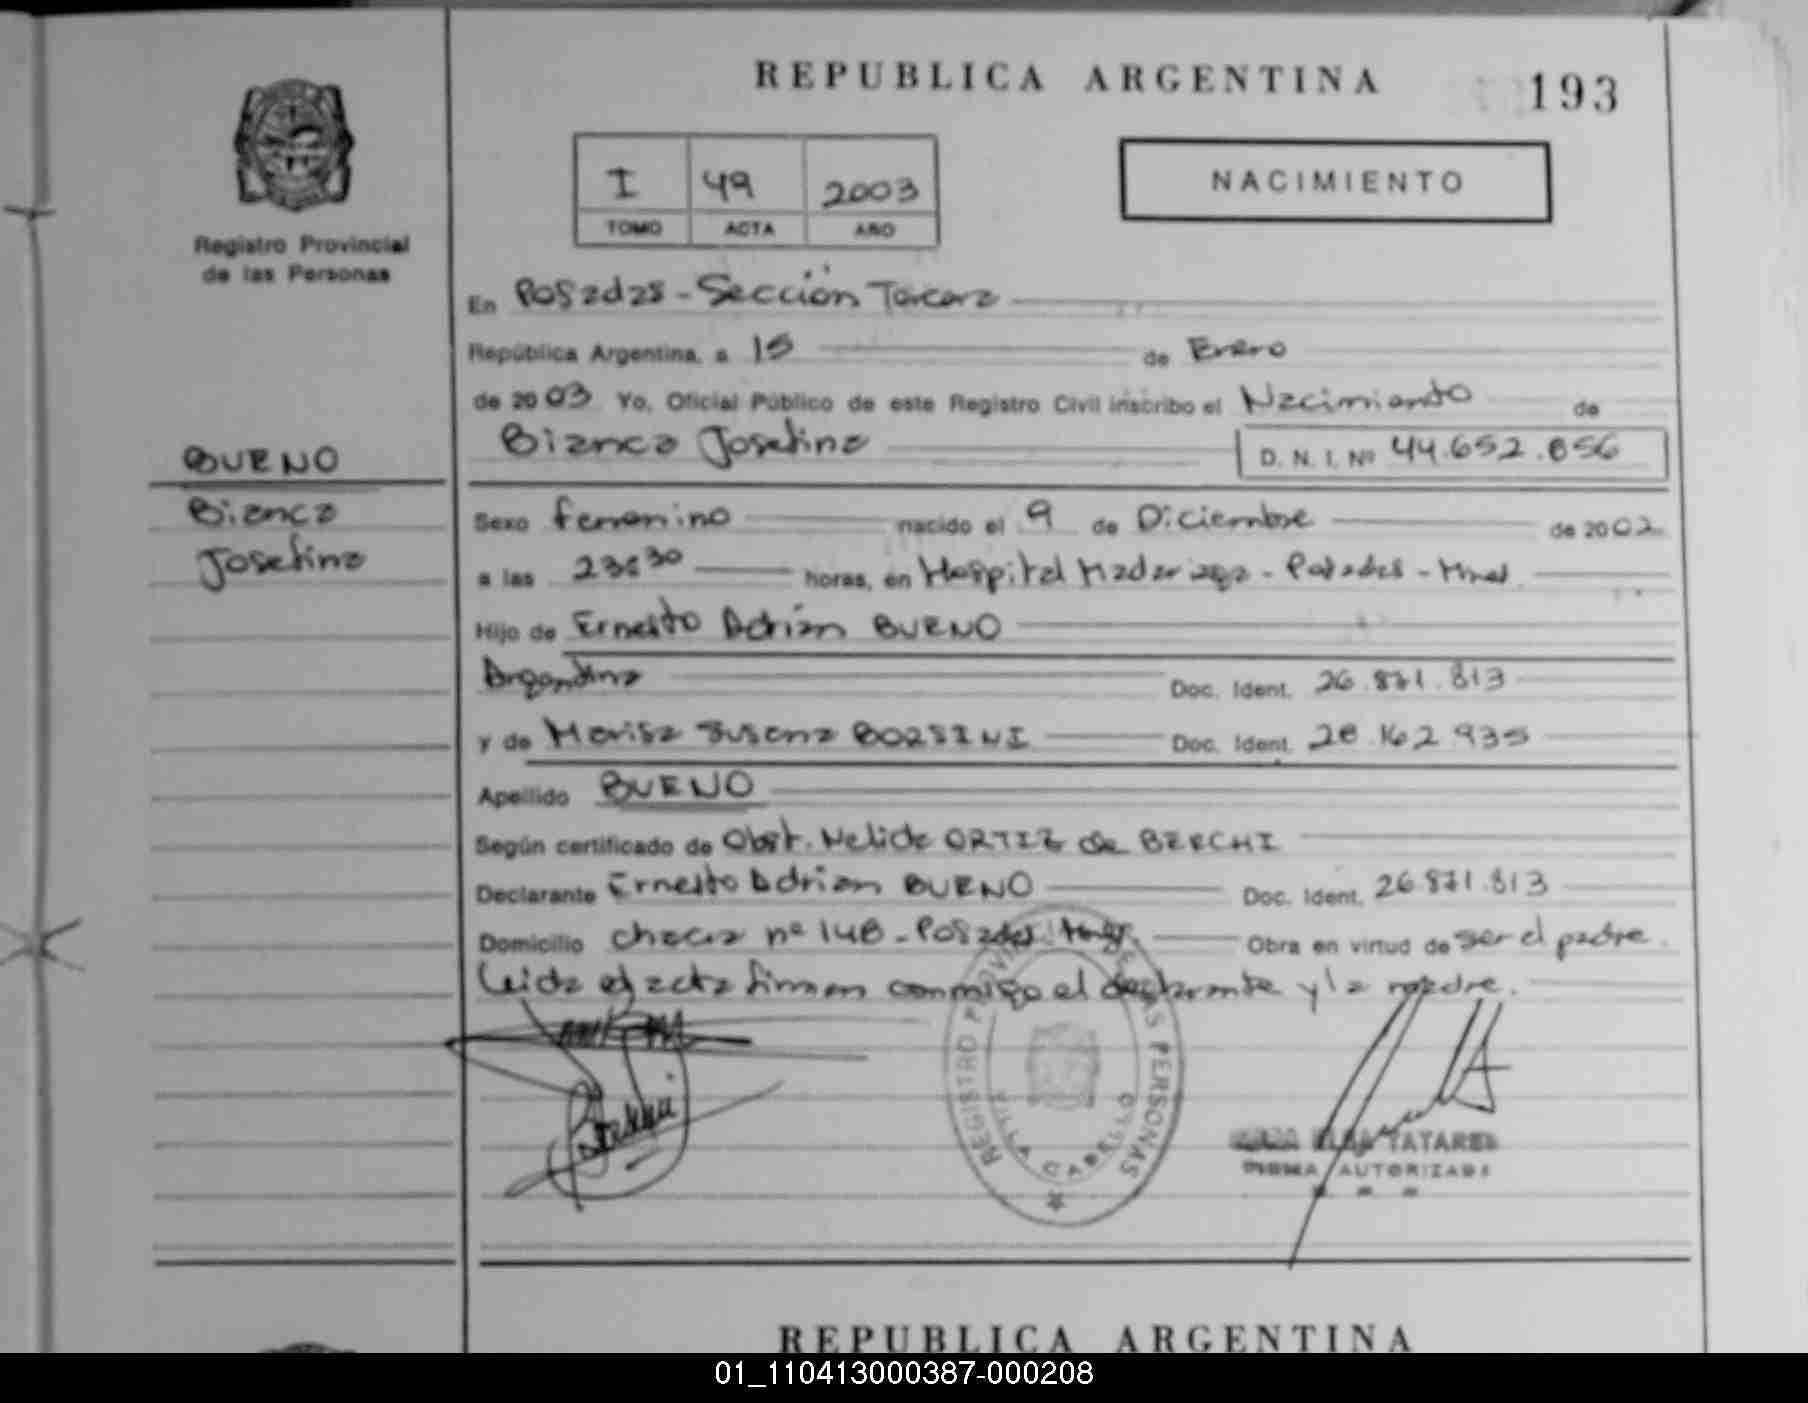 REPUBLICA ARGENTINA
193
I 49 2003
TOMO ACTA AÑO
NACIMIENTO
Registro Provincial
de las Personas
En Posadas - Sección Tercera
República Argentina, a 15 de Enero
de 2003 Yo, Oficial Público de este Registro Civil inscribo el Nacimiento de
Bianca Josefina D. N. I. Nº 44.652.856
BUENO
Bianca
Josefina
Sexo femenino nacido el 9 de Diciembre de 2002
a las 23:30 horas, en Hospital Madariaga - Posadas - Mnes
Hijo de Ernesto Adrián BUENO
Argentina Doc. Ident. 26.871.813
y de Marisa Susana BORSINI Doc. Ident. 28.162.935
Apellido BUENO
Según certificado de Obst. Nelida ORTIZ de BERCHI
Declarante Ernesto Adrian BUENO Doc. Ident. 26.871.813
Domicilio chacra nº 148 - Posadas Mnes. Obra en virtud de ser el padre.
Leida el acta firman conmigo el declarante y la madre.
REGISTRO PROVINCIAL DE LAS PERSONAS
VILLA CABELLO
ELBA TATAREN
FIRMA AUTORIZADA
REPUBLICA ARGENTINA
01_110413000387-000208